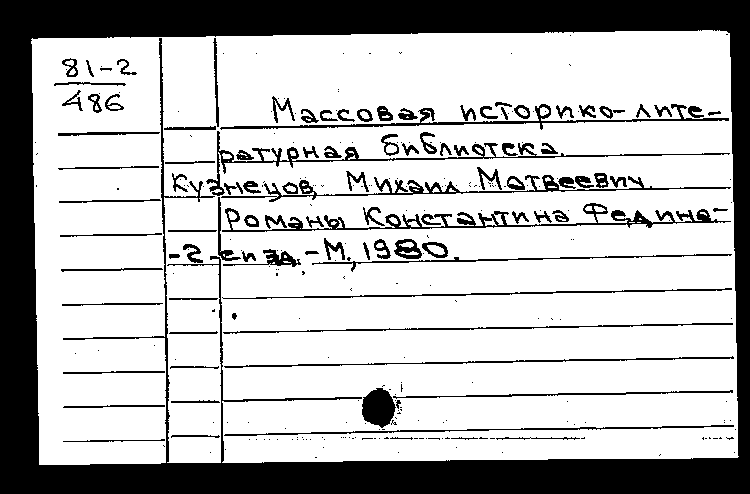 81-2
486
Массовая историко-лите-
ратурная библиотека.
Кузнецов, Михаил Матвеевич.
Романы Константина Федина.-
-2-е изд.-М., 1980.